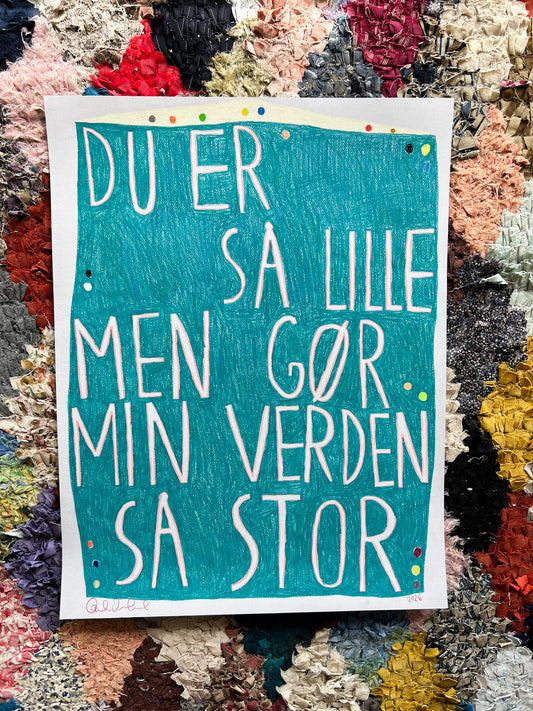 DU ER
SÅ LILLE
MEN GØR
MIN VERDEN
SÅ STOR
2026